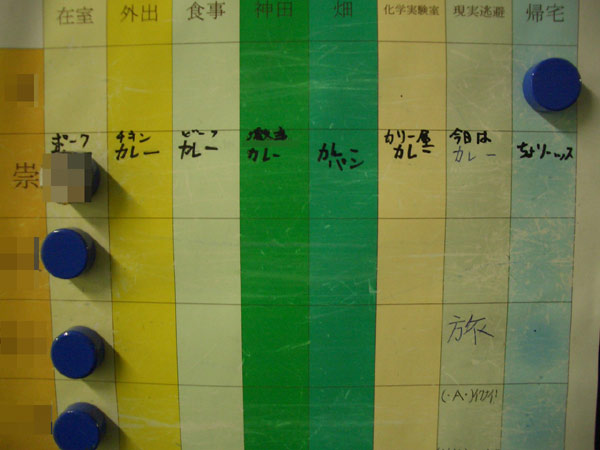 在室 外出 食事 神田 畑 化学実験室 現実逃避 帰宅
ポーク チキン ビーフ カリー屋 今日は
崇 カレー カレー カレー カレーパン カレー カレー ちょりーっス
旅
(・A・)